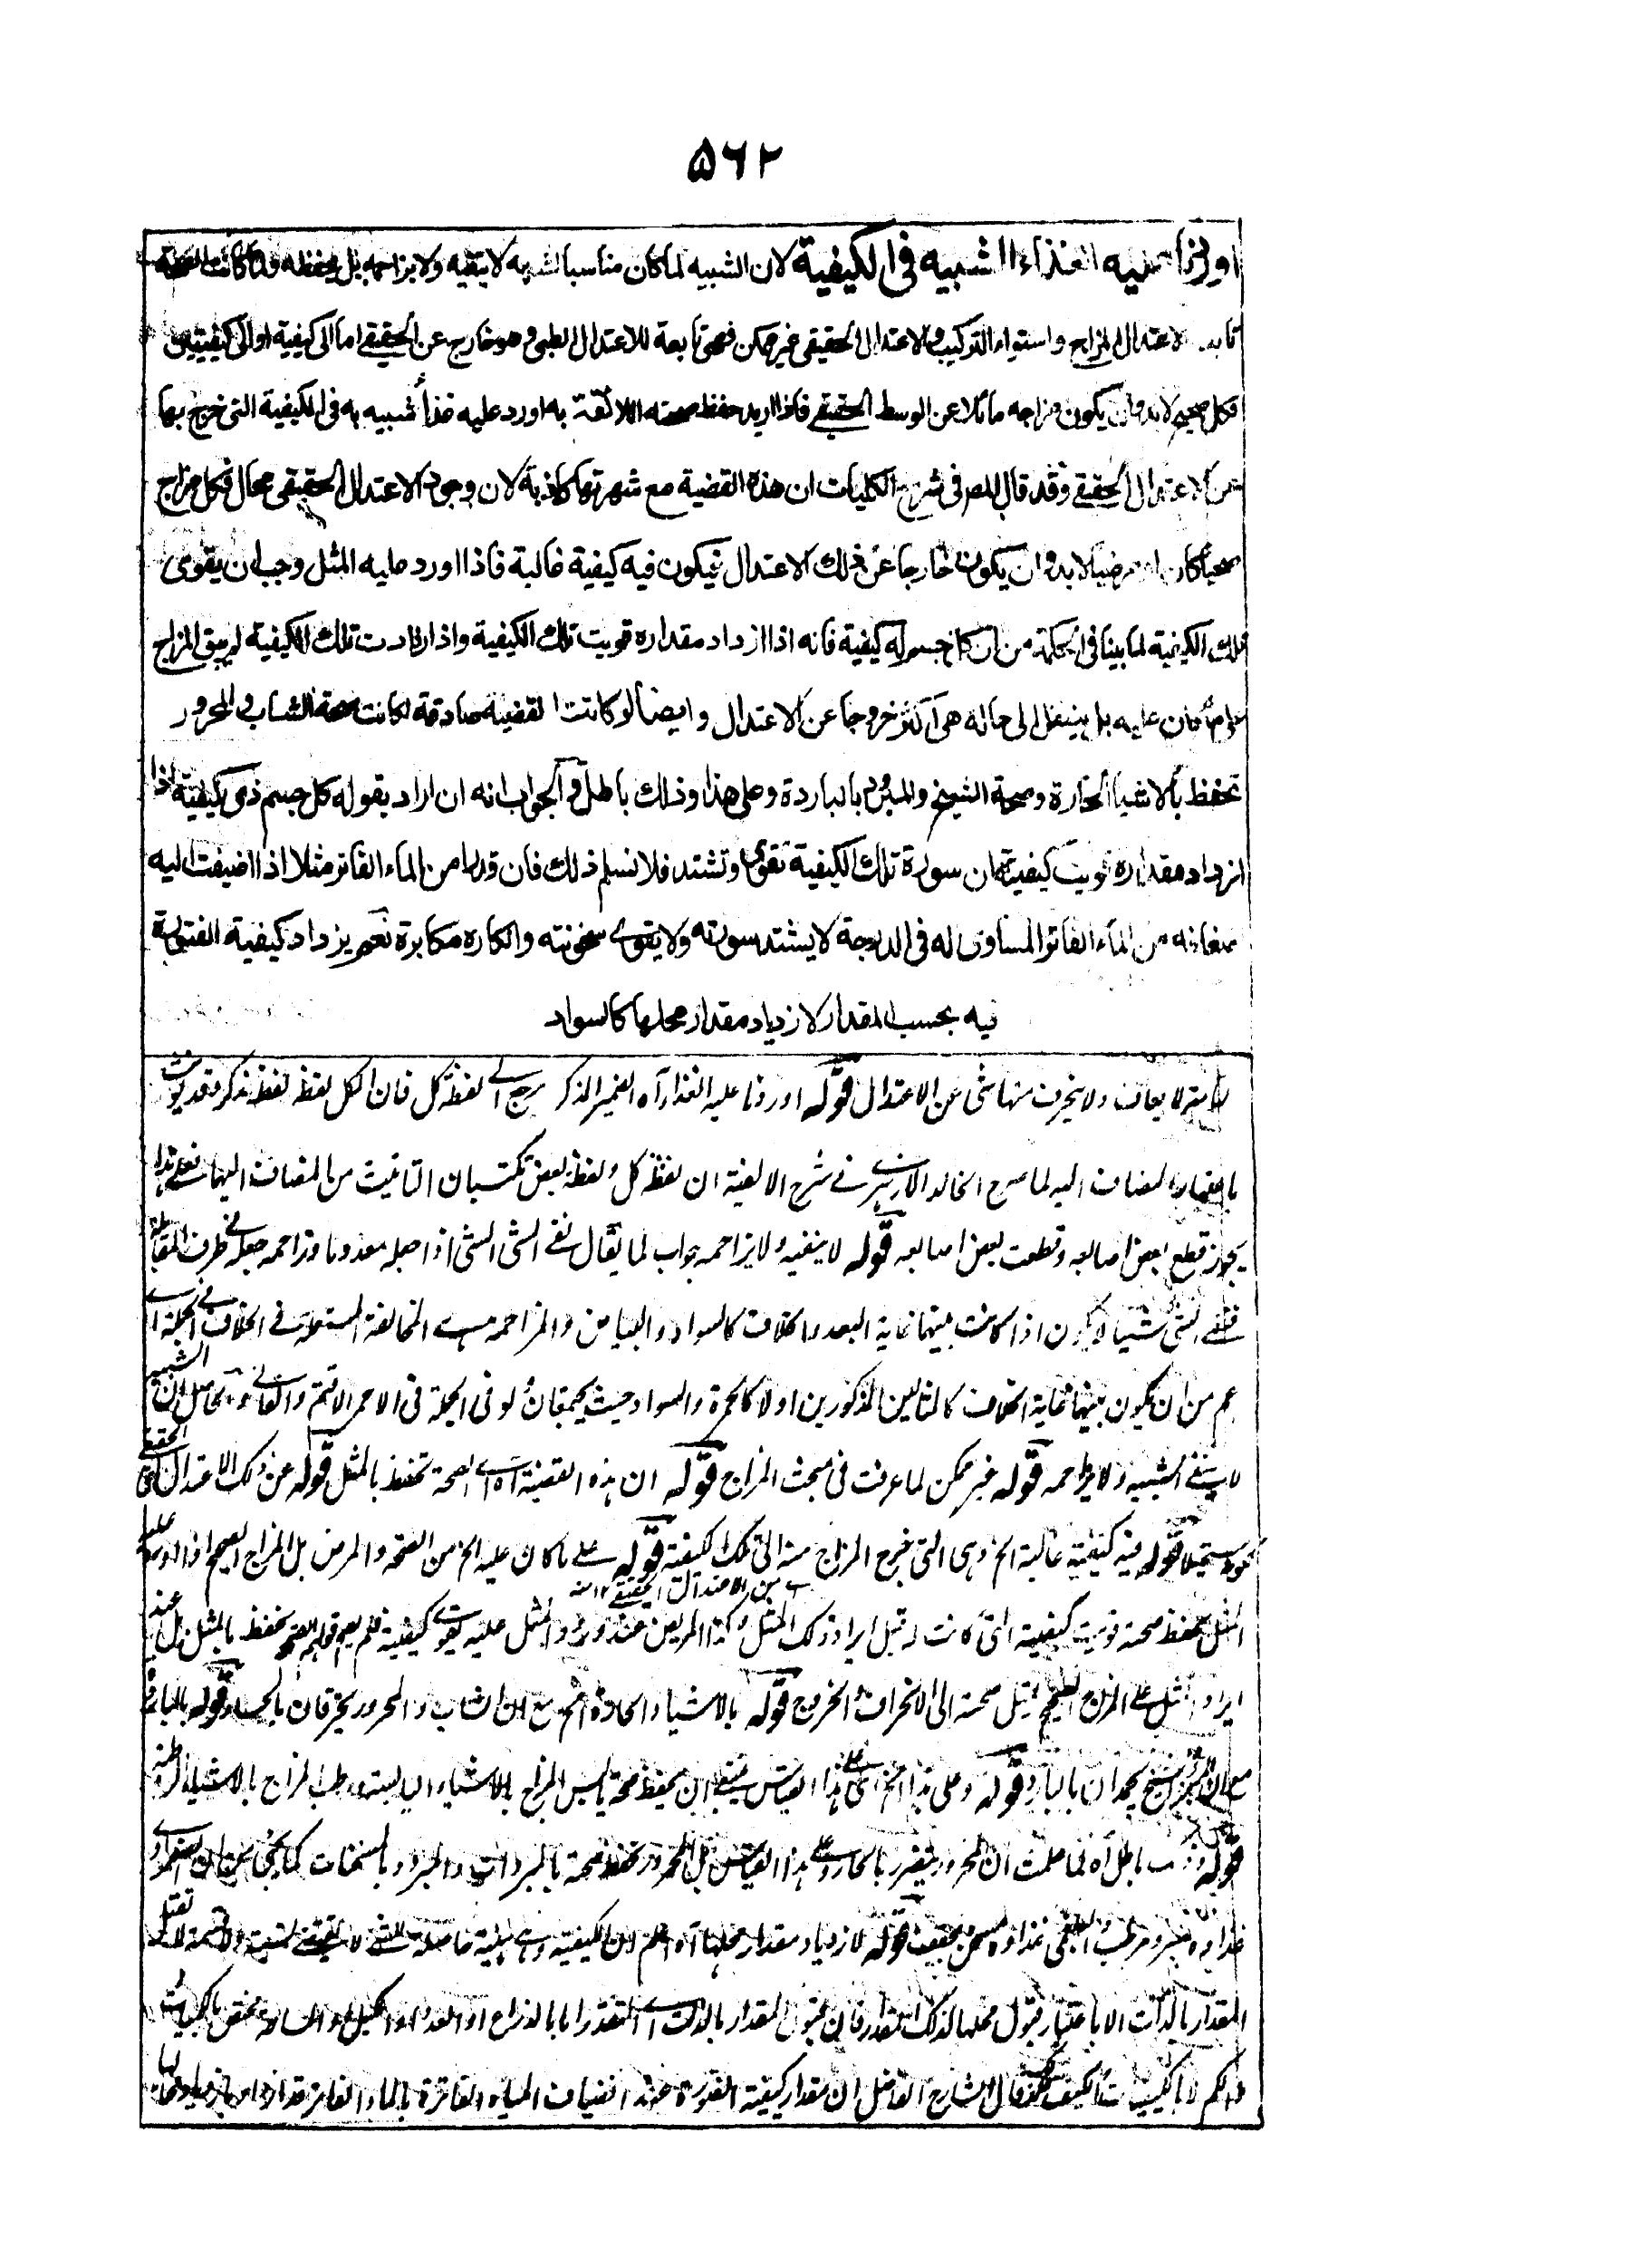 ۵۶۲
اوردنا عليه الغذاء الشبيه فى الكيفية لان الشبيه لما كان مناسبا لشبيه لا ينفيه ولا يزاحمه بل يحفظه ولما كانت الصحة
تابعة لاعتدال المزاج واستواء التركيب والاعتدال الحقيقى غير ممكن فهى تابعة للاعتدال الطبى وهو خارج عن الحقيقے اما الى كيفية او الى كيفيتين
فكل صحيح لابد وان يكون مزاجه مائلا عن الوسط الحقيقے فاذا اريد حفظ صحته اللائقة به اورد عليه غذاء شبيه به فى الكيفية التى خرج بها
عن الاعتدال الحقيقے وقد قال المص فى شرح الكليات ان هذه القضية مع شهرتها كاذبة لان وجود الاعتدال الحقيقى محال فكل مزاج
صحيا كان او مرضيا لابد وان يكون خارجا عن ذلك الاعتدال فيكون فيه كيفية غالبة فاذا اورد عليه المثل وجب ان يقوى
تلك الكيفية لما بينا فى الحكمة من ان كل جسم له كيفية فانه اذا ازداد مقداره قويت تلك الكيفية واذا زادت تلك الكيفية لم يبق المزاج
على ما كان عليه بل ينتقل الى حالة هى اكثر خروجا عن الاعتدال وايضا لو كانت القضية صادقة لكانت صحة الشاب والمحرور
تحفظ بالاشياء الحارة وصحة الشيخ والمبرود بالباردة وعلى هذا وذلك باطل والجواب انه ان اراد بقوله كل جسم ذى كيفية اذا
ازداد مقداره قويت كيفيته ان سورة تلك الكيفية تقوى وتشتد فلا نسلم ذلك فان قدرا من الماء الفاتر مثلا اذا اضيفت اليه
ضعافه من الماء الفاتر المساوى له فى الدرجة لا يشتد سورته ولا يقوے سخونته وانكاره مكابرة نعم يزداد كيفية الفتورة
فيه بحسب المقدار لازدياد مقدار محلها كالسواد
ولا ينحرف منها شئ عن الاعتدال قوله اوردنا عليه الغذاء آه الضمير المذكر يرجع الے لفظة كل فان الكل لفظ مذكر وقد يونث
باعتبار المضاف اليه لما صرح الخالد الازهرى فے شرح الالفية ان لفظ كل ولفظ بعض تكتسبان التانيث من المضاف اليها فعلى هذا
يجوز قطع بعض اصابعه وقطعت بعض اصابعه قوله لا ينفيه ولا يزاحمه جواب لما يقال نفے الشئ الشئ اذا جعله معدوما وزاحمه جعله فے طرف المقابلة
فنفے الشئ شيئا لا يكون اذا كانت بينهما غاية البعد والخلاف كالسواد والبياض والمزاحمة هے المخالفة المستعملة فى الخلاف فے الجملة اے
عم من ان يكون بينهما غاية الخلاف كالمثالين المذكورين اولا كالحمرة والسواد حيث يجتمعان ولو فى الجملة فى الاحمر الاقتم والحاصل ان الشبيه
لا ينفے الشبيه ولا يزاحمه قوله غير ممكن لما عرفت فى مبحث المزاج قوله ان هذه القضية آه اے الصحة تحفظ بالمثل قوله عن ذلك الاعتدال الحقيقے
قوله فيه كيفية غالبة الخ وهى التى خرج المزاج منه الى تلك الكيفية قوله علے ما كان عليه الخ من الصحة والمرض بل المزاج الصحيح اذا اورد عليه
من الاعتدال الحقيقے ١٢ منه
المثل بحفظ صحته قويت كيفيته التى كانت له قبل ايراد ذلك المثل وكذا المريض عند ورود المثل عليه يقوے كيفيته فلم يصح قولهم الصحة تحفظ بالمثل بل عند
ايراد المثل على المزاج الصحيح تنقل صحته الى الانحراف والخروج قوله بالاشياء الحارة الخ مع ان الشاب والمحرور يحترقان بالحار قوله بالباردة
مع ان المبرود والشيخ يجمدان بالبارد قوله وعلى هذا الخ اى على هذا القياس ينبغے ان يحفظ صحة يابس المزاج بالاشياء اليابسة ورطب المزاج بالاشياء الرطبة
قوله وذلك باطل آه لما علمت ان المحرور يتضرر بالحار وعلى هذا القياس بل المحرور تحفظ صحته بالمبردات والمبرود بالمسخنات كما يجئ من ان الصفراوى
غذاؤه مبرد مرطب والبلغمى غذاؤه مسخن مجفف قوله لازدياد مقدار محلها آه اعلم ان الكيفية وهے هيئة حاصلة للشئ لا يقتضے القسمة والنسبة لا تقبل
المقدار بالذات الا باعتبار قبول محلها لذلك المقدار فان قبول المقدار بالذات اے التقدر اما بالذراع او العدد او الكيل والمساحة مختص بالكميات
الكم لا بالكيفيات الكيف فكيف قال الشارح الفاضل ان مقدار كيفية الفتورة عند انضياف المياه الفاترة بالماء الفاتر قد ازداد